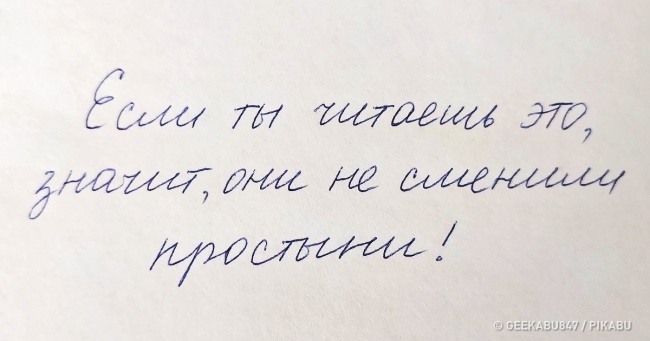 Если ты читаешь это,
значит, они не сменили
простыни!
© GEEKABU847 / PIKABU